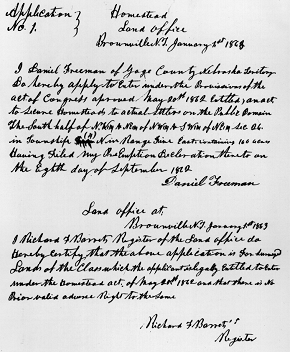 Application } Homestead
No. 1. } Land Office
Brownville N.T. January 1st 1863
I Daniel Freeman of Gage County Nebraska Territory
Do hereby apply to Enter under the Provisions of the
act of Congress aproved May 20th 1862 Entitled, an act
to Secure Homsteads to actual Settlers on the Public Domain
The South half of N.W¼ & NE¼ of NW¼ & SW¼ of NE¼ Sec 26.
in Township (4) N in Range Five East containing 160 acres
Having Filed my Pre Emption Declaration thereto on
the Eighth day of September 1862
Daniel Freeman
Land office at
Brownville N.T. January 1st 1863
I Richard F Barrett Register of the Land office do
Hereby Certify that the above application is For Surveyed
Lands of the Class which the applicant is legally Entitled to Enter
under the Homestead act of May 20th 1862 and that there is no
Prior valid adverse Right to the Same
Richard F Barrett
Register